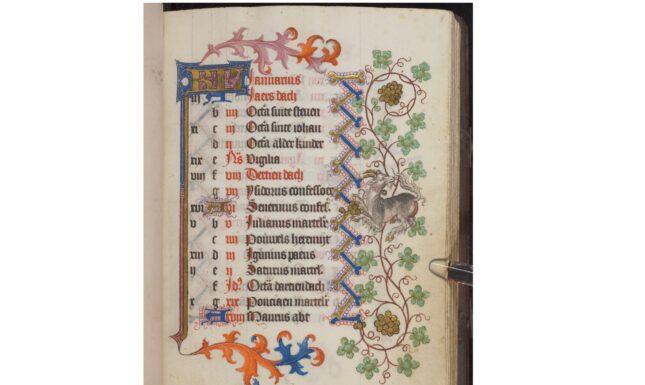 KL Januarius
iij Jaers dach
b iiij Octā sinte steuen
xi c iij Octā sinte iohan
d ij Octā alder kinder
xix e Nᵒˢ Vigilia
viij f viij Dertien dach
g vij Ysidorus confessoer
xvi vi Seuerinus confes.
v b v Julianus martelr
c iiij Pouwels heremijt
xiij d iij
ij e ij Saturus martel.
f Jdꝰ Octā dartiendach
x g xix Ponciaen martelr
xviij Maurus abt